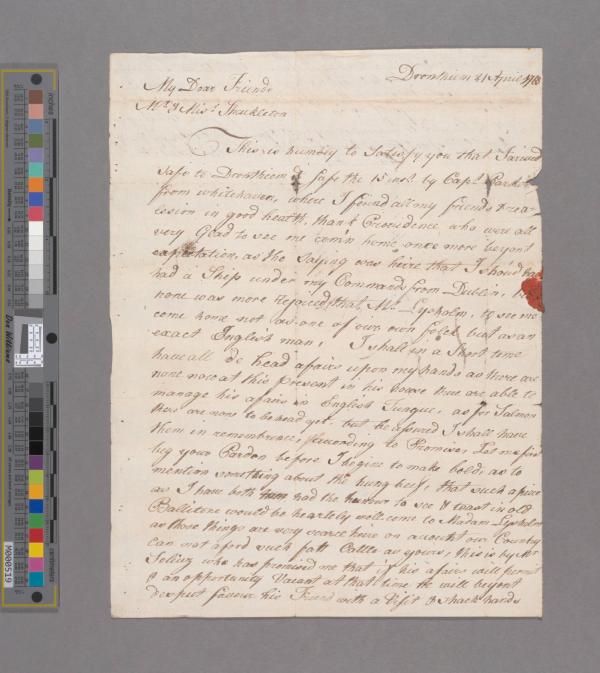 Drontheim 21 April 17
My Dear Friends
Mr. & Miss. Shackleton
This is humbly to Satisfy you that I arived
safe to Drontheim safe the 15 inst. by Capt. Park
from whitehaven, where I found all my friends & rea-
lesion in good health, thank Providence, who were all
very Glad to see me com'n home once more beyont
expectation, as the Saying was here that I shou'd ha
had a Ship under my Command from Dublin,
none was more Rejoiced that Mr. Lysholm, to see me
come home not as one of our own folck but as an
exact English man, I shall in a Short time
have all de head afairs upon my hands as there are
none now at this present in his house that are able to
manage his afairs in English Tungue, as for Salmon
there are none to be head yet, but be assured I shall have
them in remembrance, according to Promise, Let me first
beg your Pardon before I begine to make bold, as to
mention something about the hung beef, that such a piece
as I have both had the honour to see & toast in old
Balitore would be heartely wellcome to Madam Lysholm
as those things are very scarce here on account our Country
can not aford such fatt Cattle as yours, this is by Mr
Selling who has promised me that if his afairs will permit
& an opportunity Vacant at that time he will beyont
desput favour his Friend with a Visit & shack hands
inches
Don Williams
M000519